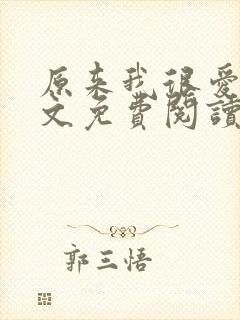 原来我很爱
文免費閱讀
郭三悟